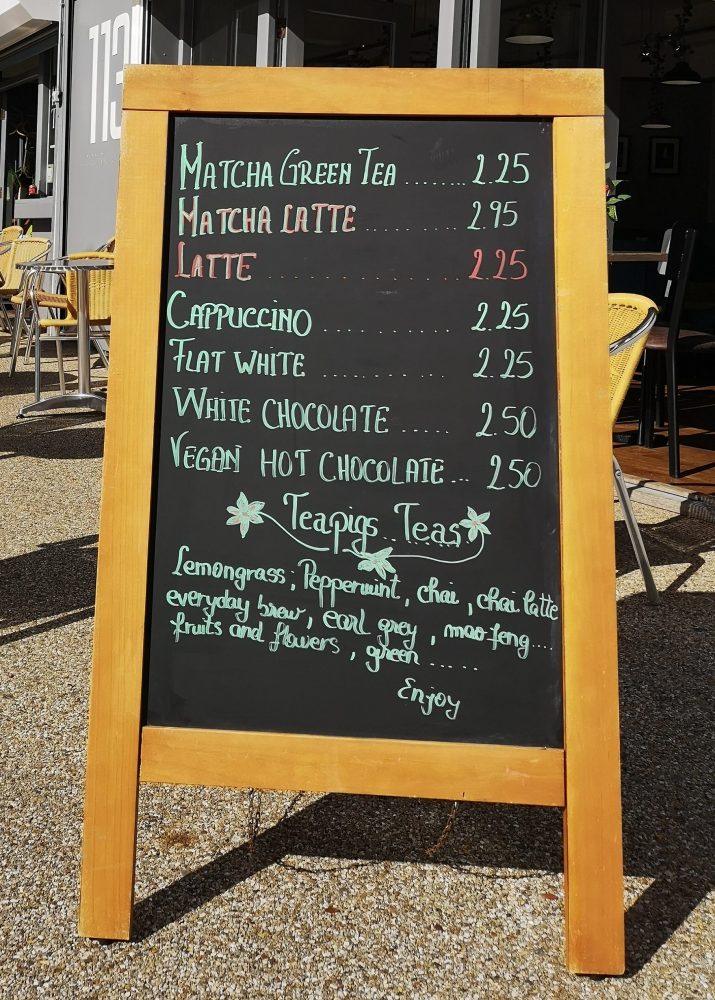 113
MATCHA GREEN TEA ........ 2.25
MATCHA LATTE ........ 2.95
LATTE ............ 2.25
CAPPUCCINO .......... 2.25
FLAT WHITE .......... 2.25
WHITE CHOCOLATE ..... 2.50
VEGAN HOT CHOCOLATE ... 2.50
Teapigs Teas
Lemongrass, Peppermint, chai, chai latte
everyday brew, earl grey, mao-feng....
fruits and flowers, green ......
Enjoy